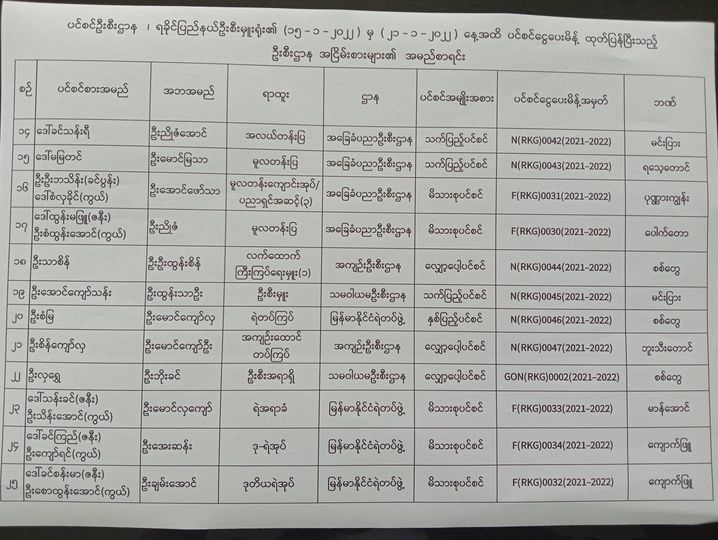 ပင်စင်ဦးစီးဌာန ၊ ရခိုင်ပြည်နယ်ဦးစီးမှူးရုံး၏ (၁၅-၁-၂၀၂၂) မှ (၂၁-၁-၂၀၂၂) နေ့အထိ ပင်စင်ငွေပေးမိန့် ထုတ်ပြန်ပြီးသည့်
ဦးစီးဌာန အငြိမ်းစားများ၏ အမည်စာရင်း
စဉ် ပင်စင်စားအမည် အဘအမည် ရာထူး ဌာန ပင်စင်အမျိုးအစား ပင်စင်ငွေပေးမိန့်အမှတ် ဘဏ်
၁၄ ဒေါ်ခင်သန်းရီ ဦးညိုဖံအောင် အလယ်တန်းပြ အခြေခံပညာဦးစီးဌာန သက်ပြည့်ပင်စင် N(RKG)0042(2021-2022) မင်းပြား
၁၅ ဒေါ်မမြတင် ဦးမောင်မြသာ မူလတန်းပြ အခြေခံပညာဦးစီးဌာန သက်ပြည့်ပင်စင် N(RKG)0043(2021-2022) ရသေ့တောင်
၁၆ ဦးဦးဘသိန်း(ခင်ပွန်း) ဦးအောင်ဖော်သာ မူလတန်းကျောင်းအုပ်/ အခြေခံပညာဦးစီးဌာန မိသားစုပင်စင် F(RKG)0031(2021-2022) ပုဏ္ဏားကျွန်း
ဒေါ်စံလှခိုင်(ကွယ်) ပညာရှင်အဆင့်(၃)
၁၇ ဒေါ်ထွန်းမဖြူ(ဇနီး) ဦးညိုဖံ မူလတန်းပြ အခြေခံပညာဦးစီးဌာန မိသားစုပင်စင် F(RKG)0030(2021-2022) ပေါက်တော
ဦးစံထွန်းအောင်(ကွယ်)
၁၈ ဦးသာစိန် ဦးဦးထွန်းစိန် လက်ထောက် အကျဉ်းဦးစီးဌာန လျှော့ပေါ့ပင်စင် N(RKG)0044(2021-2022) စစ်တွေ
ကြီးကြပ်ရေးမှူး(၁)
၁၉ ဦးအောင်ကျော်သန်း ဦးထွန်းသာဦး ဦးစီးမှူး သမဝါယမဦးစီးဌာန သက်ပြည့်ပင်စင် N(RKG)0045(2021-2022) မင်းပြား
၂၀ ဦးစံမြ ဦးမောင်ကျော်လှ ရဲတပ်ကြပ် မြန်မာနိုင်ငံရဲတပ်ဖွဲ့ နှစ်ပြည့်ပင်စင် N(RKG)0046(2021-2022) စစ်တွေ
၂၁ ဦးစိန်ကျော်လှ ဦးမောင်ကျော်ဦး အကျဉ်းထောင် အကျဉ်းဦးစီးဌာန လျှော့ပေါ့ပင်စင် N(RKG)0047(2021-2022) ဘူးသီးတောင်
တပ်ကြပ်
၂၂ ဦးလှရွှေ ဦးဘိုးခင် ဦးစီးအရာရှိ သမဝါယမဦးစီးဌာန လျှော့ပေါ့ပင်စင် GON(RKG)0002(2021-2022) စစ်တွေ
၂၃ ဒေါ်သန်းခင်(ဇနီး) ဦးမောင်လှကျော် ရဲအရာခံ မြန်မာနိုင်ငံရဲတပ်ဖွဲ့ မိသားစုပင်စင် F(RKG)0033(2021-2022) မာန်အောင်
ဦးသိန်းအောင်(ကွယ်)
၂၄ ဒေါ်ခင်ကြည်(ဇနီး) ဦးအေးဆန်း ဒု-ရဲအုပ် မြန်မာနိုင်ငံရဲတပ်ဖွဲ့ မိသားစုပင်စင် F(RKG)0034(2021-2022) ကျောက်ဖြူ
ဦးကျော်ရင်(ကွယ်)
၂၅ ဒေါ်ခင်စန်းမာ(ဇနီး) ဦးချမ်းအောင် ဒုတိယရဲအုပ် မြန်မာနိုင်ငံရဲတပ်ဖွဲ့ မိသားစုပင်စင် F(RKG)0032(2021-2022) ကျောက်ဖြူ
ဦးစောထွန်းအောင်(ကွယ်)